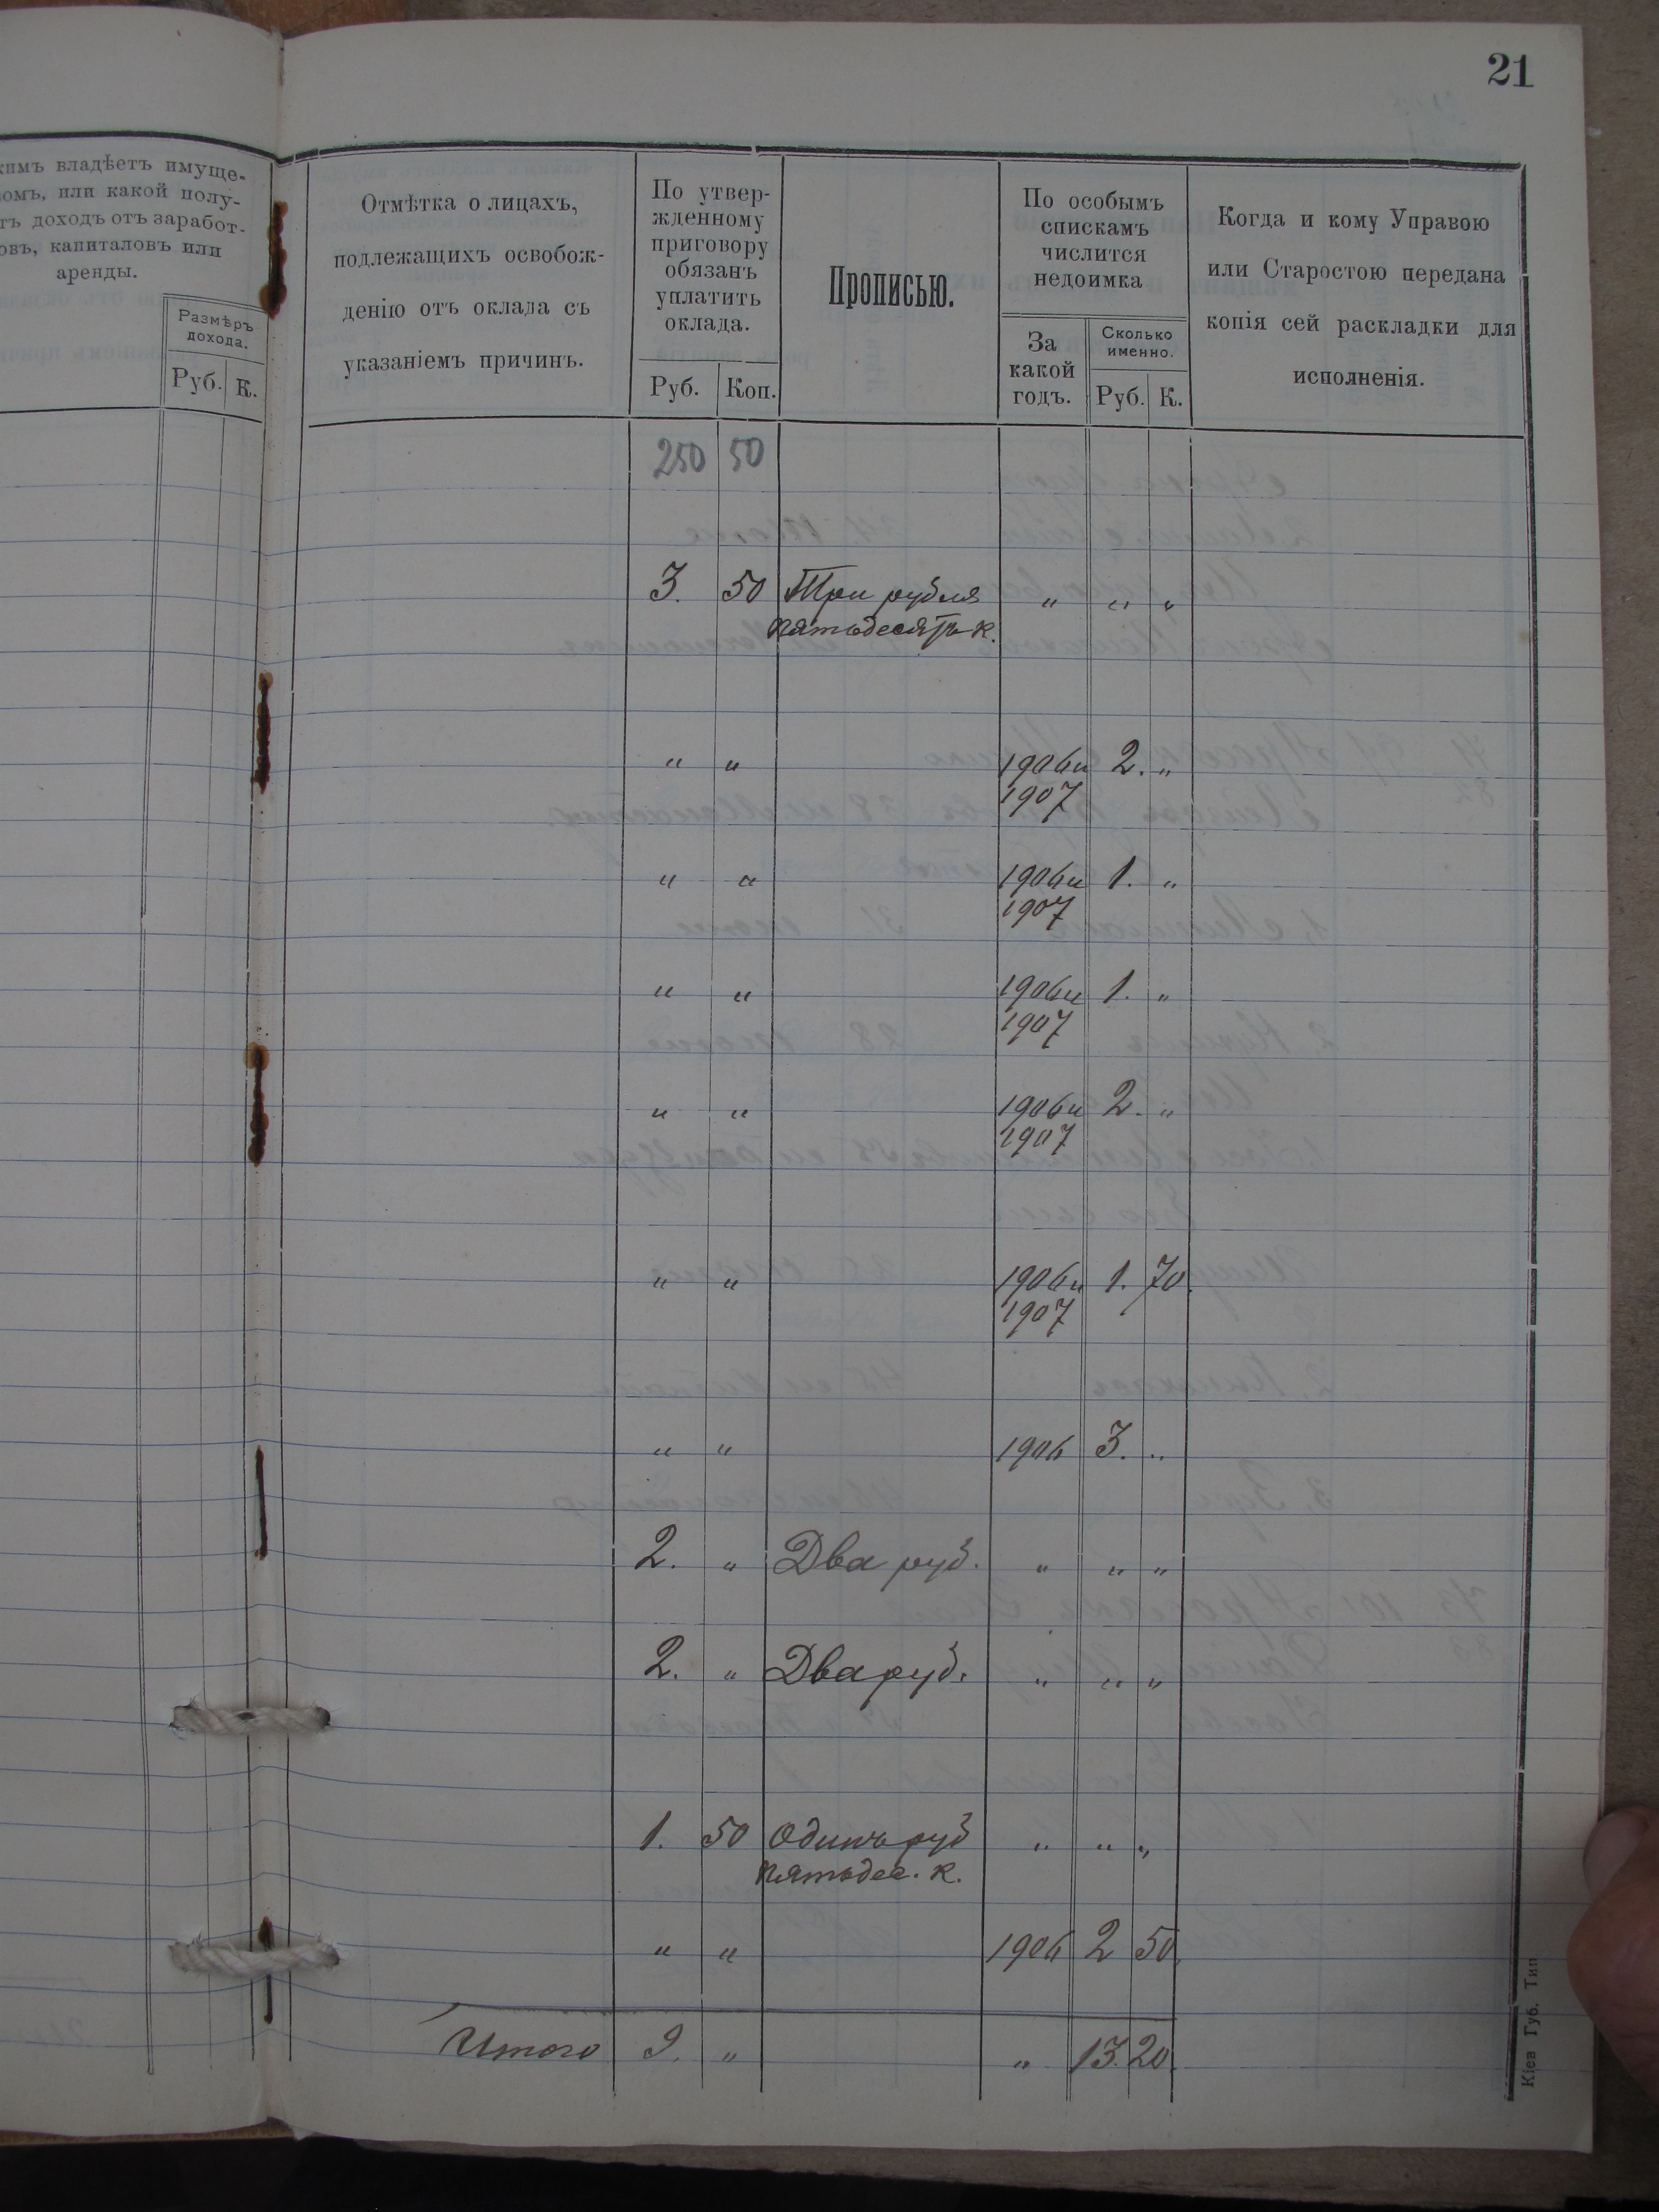 21
кимъ владѣетъ имуще-
омъ, или какой полу-
тъ доходъ отъ заработ-
овъ, капиталовъ или
аренды.
Размѣръ
дохода.
Руб. К.
Отмѣтка о лицахъ,
подлежащихъ освобож-
денію отъ оклада съ
указаніемъ причинъ.
По утвер-
жденному
приговору
обязанъ
уплатить
оклада.
Руб. Коп.
Прописью.
По особымъ
спискамъ
числится
недоимка
За
какой
годъ.
Сколько
именно.
Руб. К.
Когда и кому Управою
или Старостою передана
копія сей раскладки для
исполненія.
250 50
3. 50 Три рубля „ „ „
пятьдесятъ к.
„ „ 1906 и 2. „
1907
„ „ 1906 и 1. „
1907
„ „ 1906 и 1. „
1907
„ „ 1906 и 2. „
1907
„ „ 1906 и 1. 70.
1907
„ „ 1906 3. „
2. „ Два руб. „ „ „
2. „ Два руб. „ „ „
1. 50 Одинъ руб „ „ „
пятьдес. к.
„ „ 1906 2 50.
Итого 9. „ „ 13. 20.
Кіев Губ. Тип